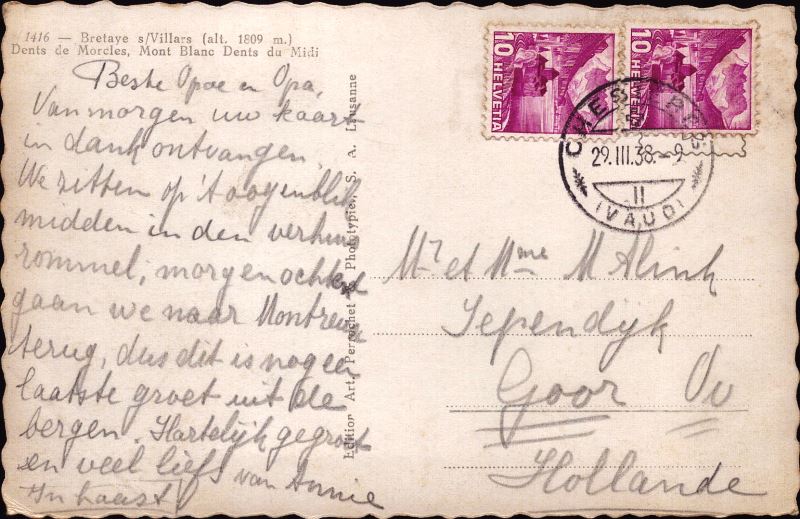 1416 — Bretaye s/Villars (alt. 1809 m.)
Dents de Morcles, Mont Blanc Dents du Midi
Beste Opoe en Opa,
Van morgen uw kaart
in dank ontvangen.
We zitten op 't oogenblik
midden in den verhuis
rommel, morgenochtend
gaan we naar Montreux
terug, dus dit is nog een
laatste groet uit de
bergen. Hartelijk gegroet
en veel liefs van Annie
In haast!
Edition Art. Perrochet Phototypie, S. A. Lausanne
10 HELVETIA
10 HELVETIA
CHESIÈRES
29.III.38.-9
II
(VAUD)
Mr et Mme M Alink
Iependijk
Goor Ov
Hollande